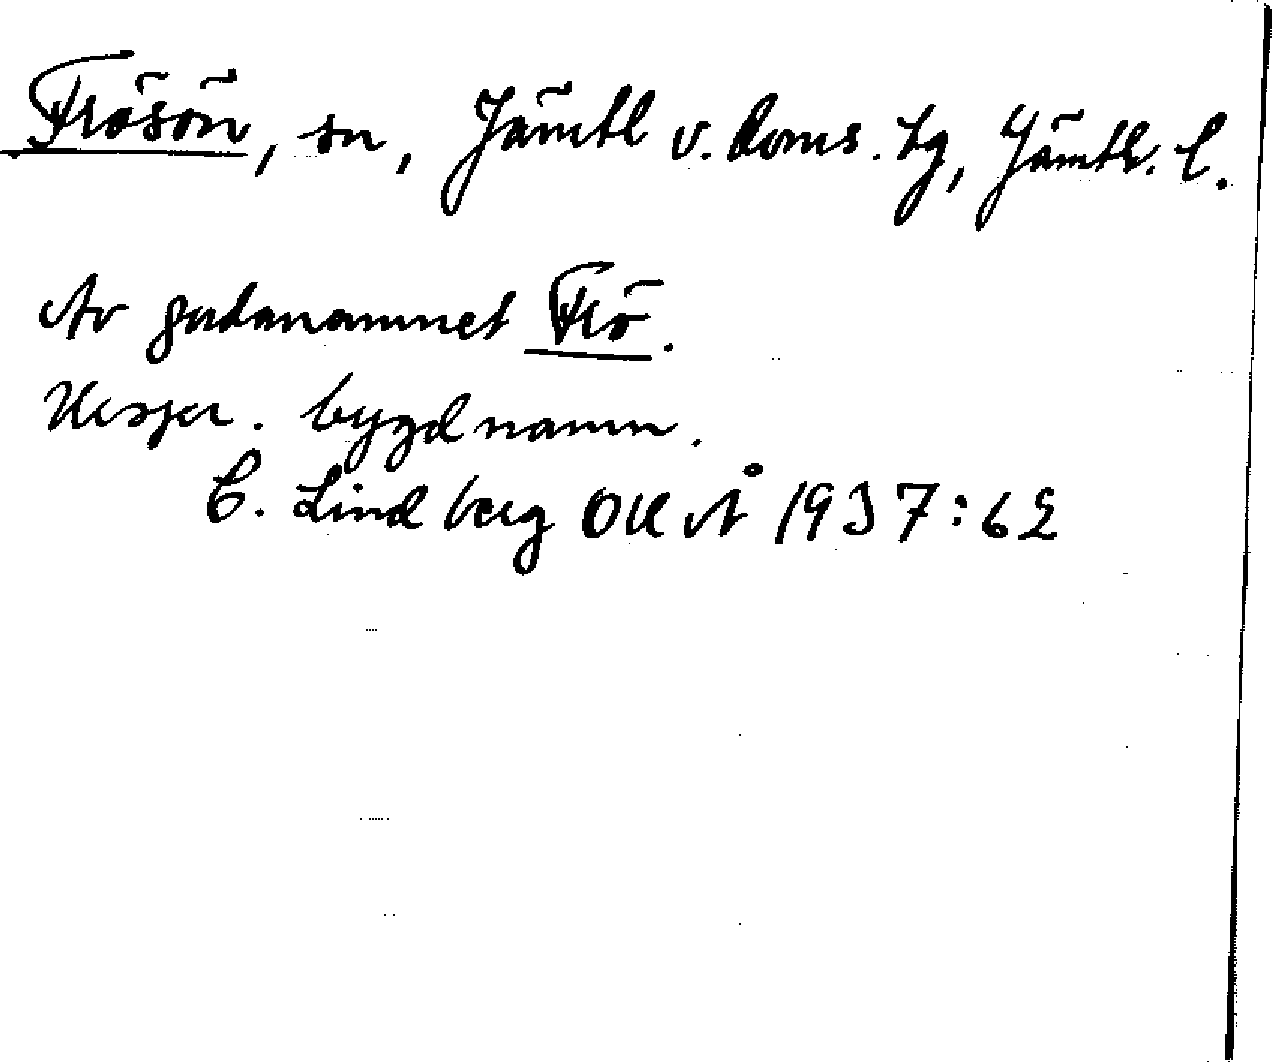 Frösön, sn, Jämtl v. doms. tg, Jämtl. l.
Av gudanamnet Frö.
Urspr. bygdnamn.
C. Lindberg OUÅ 1937:62